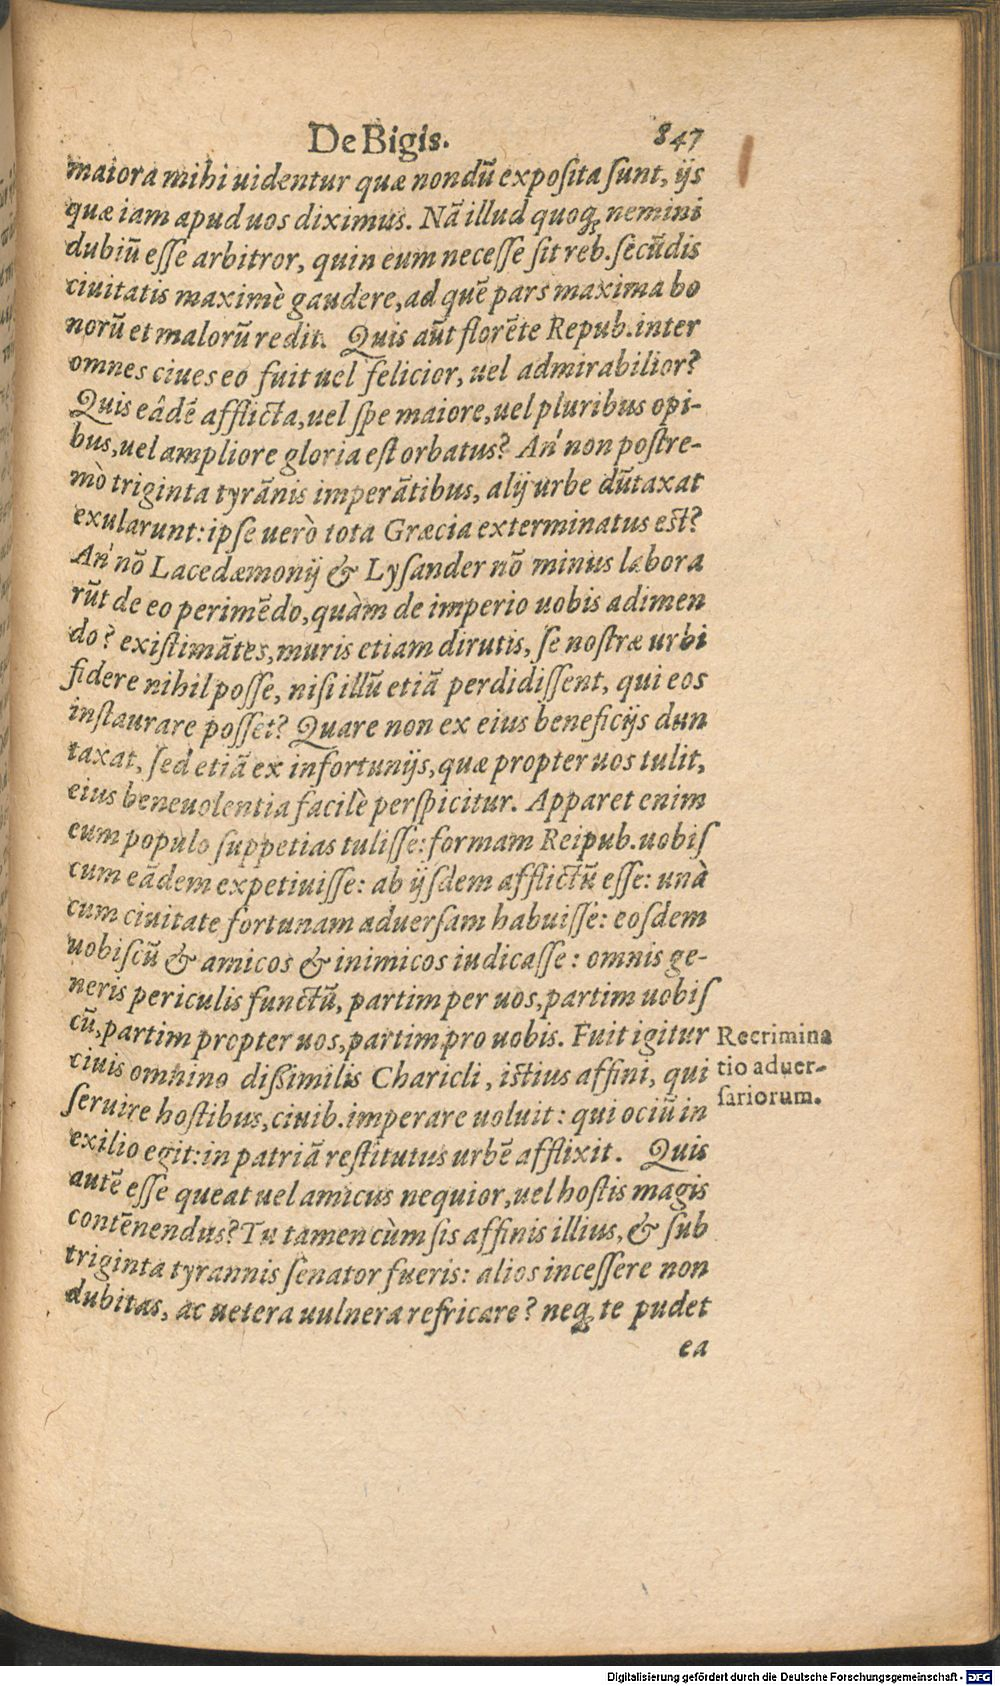 De Bigis. 847
maiora mihi uidentur quæ nondū exposita sunt, ijs
quæ iam apud uos diximus. Nā illud quoq; nemini
dubiū esse arbitror, quin eum necesse sit reb. secūdis
ciuitatis maximè gaudere, ad quē pars maxima bo
norū et malorū redit. Quis aūt florēte Repub. inter
omnes ciues eo fuit uel felicior, uel admirabilior?
Quis eâdē afflicta, uel spe maiore, uel pluribus opi-
bus, uel ampliore gloria est orbatus? An' non postre-
mò triginta tyrānis imperātibus, alij urbe dūtaxat
exularunt: ipse uerò tota Græcia exterminatus est?
An' nō Lacedæmonij & Lysander nō minus labora
rūt de eo perimēdo, quàm de imperio uobis adimen
do? existimātes, muris etiam dirutis, se nostræ urbi
fidere nihil posse, nisi illū etiā perdidissent, qui eos
instaurare posset? Quare non ex eius beneficijs dun
taxat, sed etiā ex infortunijs, quæ propter uos tulit,
eius beneuolentia facilè perspicitur. Apparet enim
eum populo suppetias tulisse: formam Reipub. uobis
cum eādem expetiuisse: ab ijsdem afflictū esse: unà
cum ciuitate fortunam aduersam habuisse: eosdem
uobiscū & amicos & inimicos iudicasse: omnis ge-
neris periculis functū, partim per uos, partim uobis
cū, partim propter uos, partim pro uobis. Fuit igitur
ciuis omnino dissimilis Charicli, istius affini, qui
seruire hostibus, ciuib. imperare uoluit: qui ociū in
exilio egit: in patriā restitutus urbē afflixit. Quis
autē esse queat uel amicus nequior, uel hostis magis
contēnendus? Tu tamen cùm sis affinis illius, & sub
triginta tyrannis senator fueris: alios incessere non
dubitas, ac uetera uulnera refricare? neq; te pudet
ea
Recrimina
tio aduer-
sariorum.
Digitalisierung gefördert durch die Deutsche Forschungsgemeinschaft - DFG